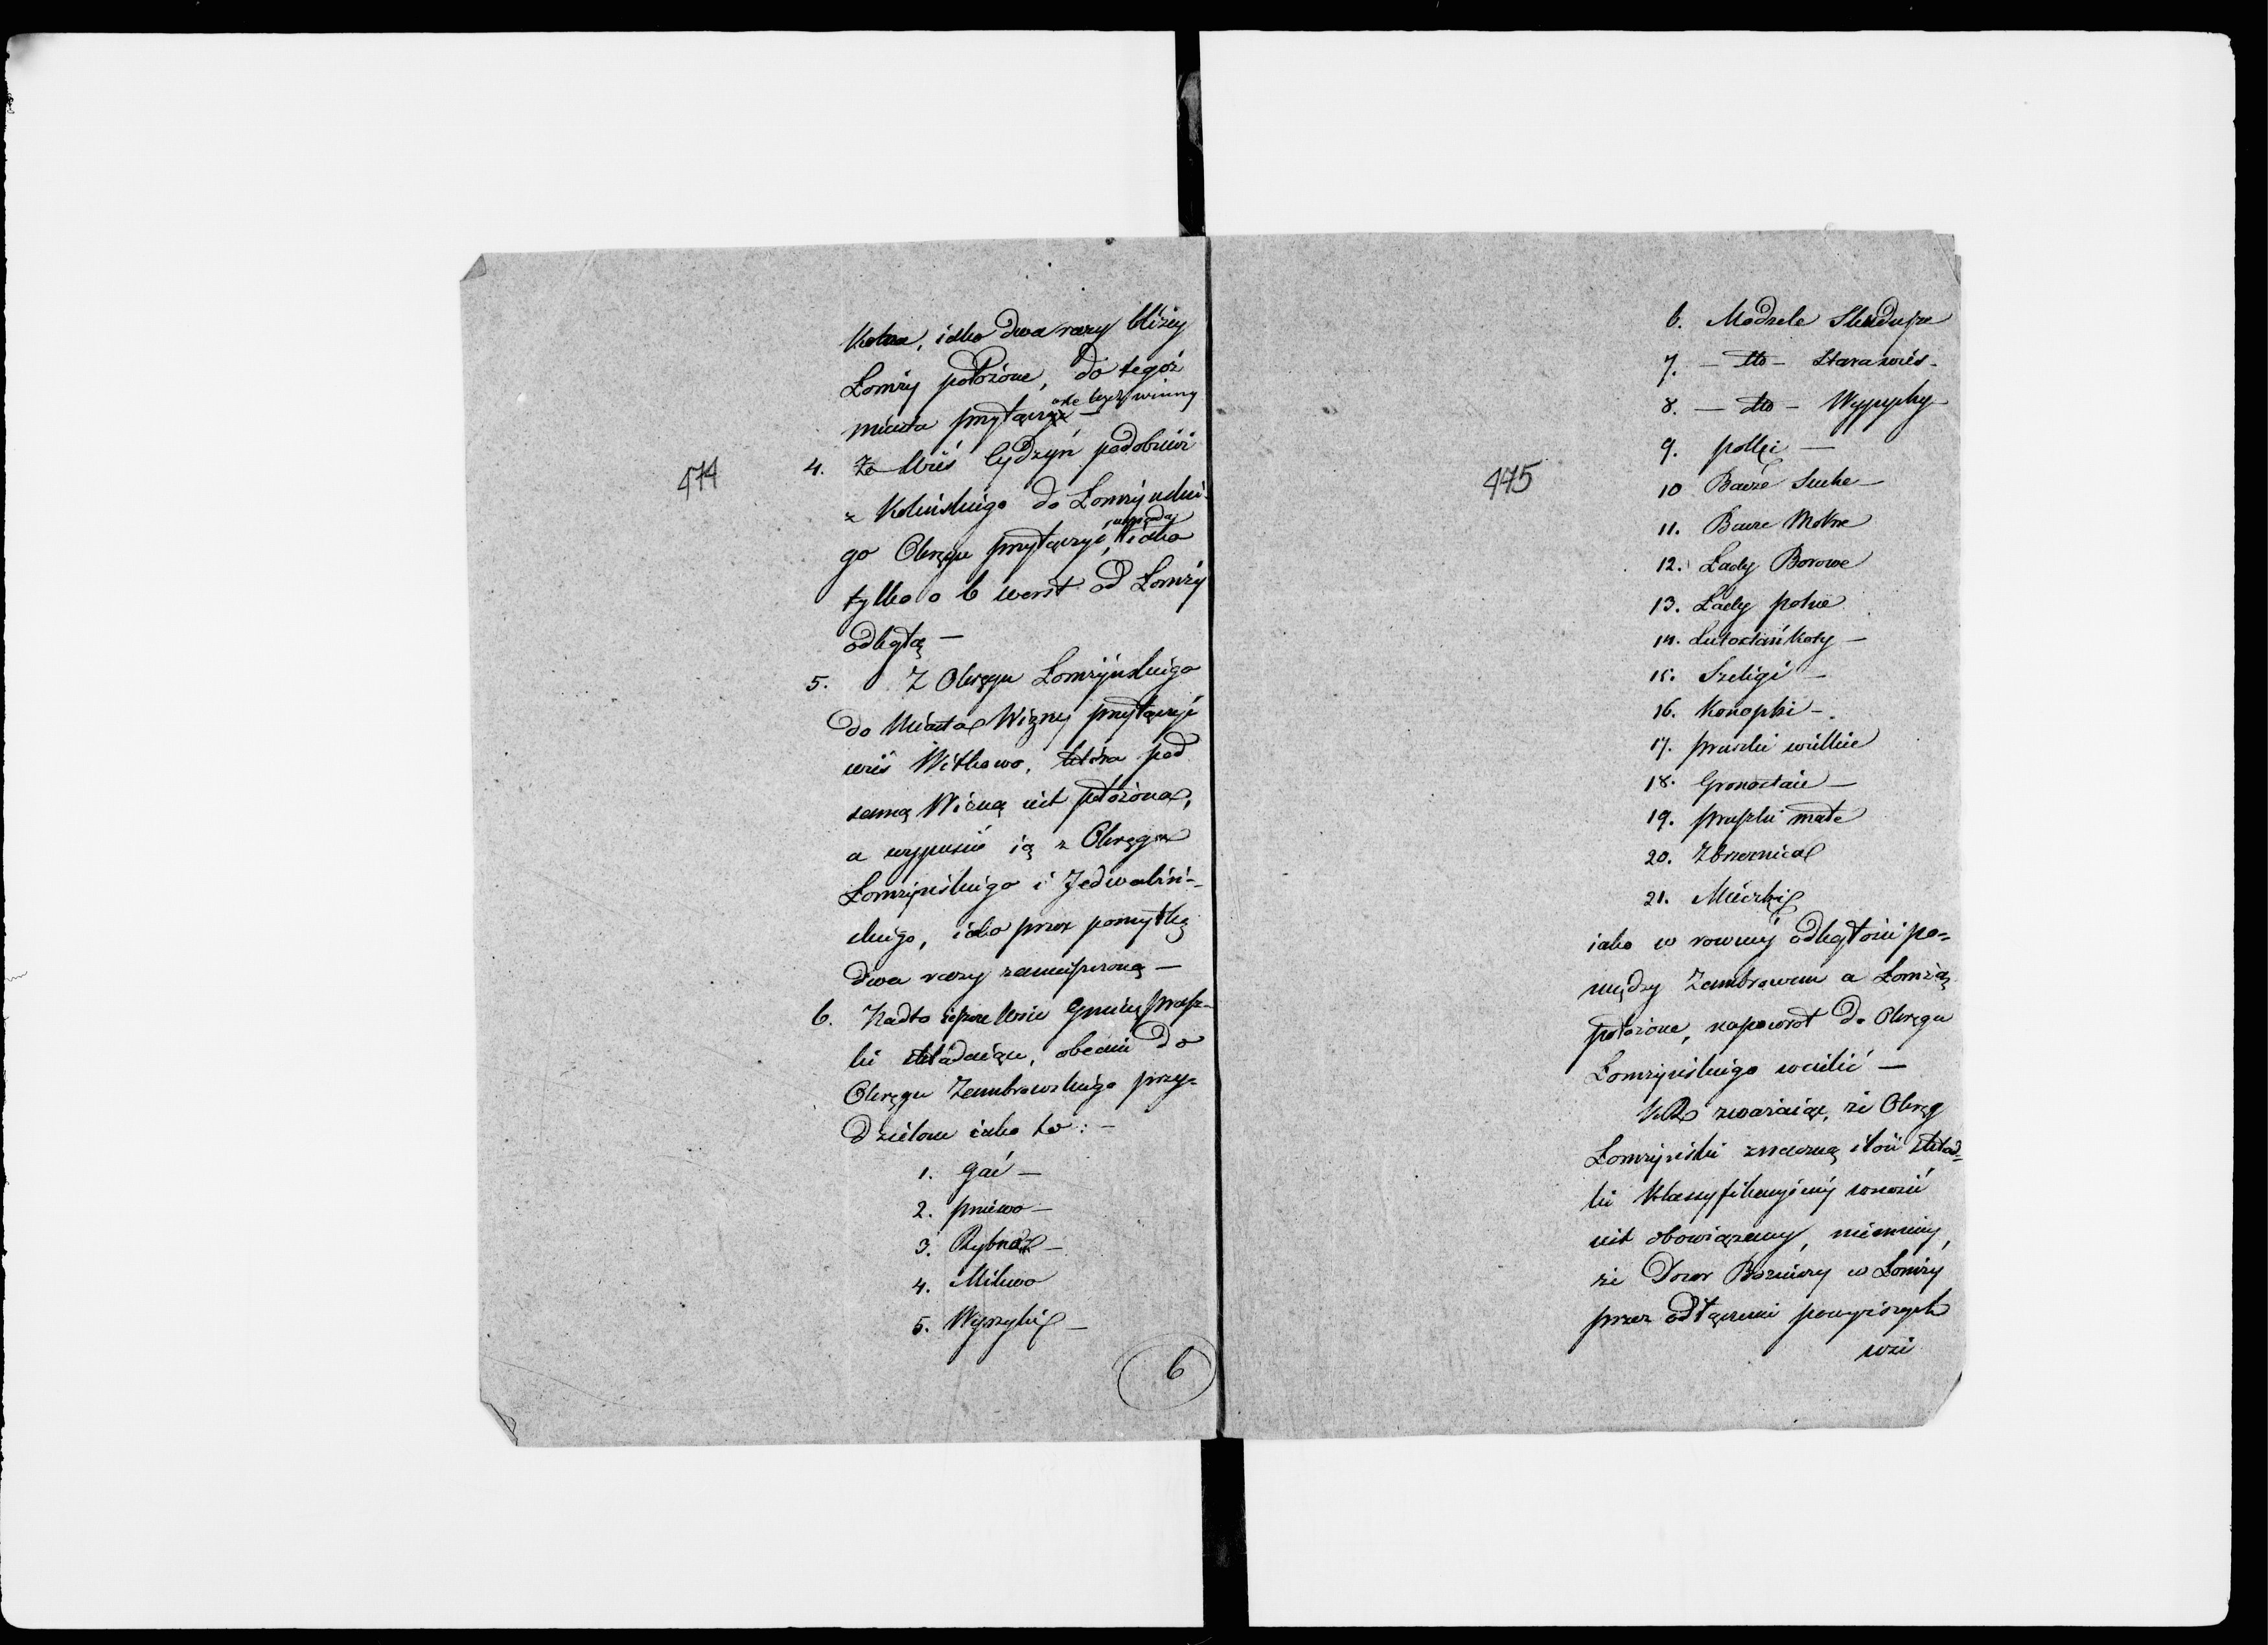 474
Kolna, iako dwa razy bliżey
Łomży położone, do tegoż
miasta przyłączyć one być winny
4. Że Wieś Cydzyń podobnież
z Kolińskiego do Łomżyńskie-
go Okręgu przyłączyć wypada, iako
tylko o 6 werst od Łomży
odległą —
5. Z Okręgu Łomżyńskiego
do Miasta Wizny przyłączyć
wieś Witkowo, która pod
samą Wizną iest położona,
a wypuścić ią z Okręgu
Łomżyńskiego i Jedwabiń-
skiego, iako przez pomyłkę
dwa razy zamieszczoną —
6. Nadto ieszcze Wsie Gminę Prusz-
ki składaiące, obecnie do
Okręgu Zambrowskiego przy-
dzielone iako to: —
1. Gać —
2. Pniewo —
3. Rybno —
4. Milewo
5. Wyrzyki —
6
475
6. Modzele Skudosze
7. — dto — Starawieś —
8. — dto — Wypychy
9. Polki —
10 Bacze Suche —
11. Bacze Mokre
12. Łady Borowe
13. Łady polne
14. Lutostań Koty —
15. Szeligi —
16. Konopki —
17. Pruszki wielkie
18. Gronostaie —
19. Pruszki małe
20. Zbrzeznica
21. Mieczki
iako w rowney odległości po-
między Zambrowem a Łomżą
położone, napowrot do Okręgu
Łomżyńskiego wcielić —
zważaiąc, że Okręg
Łomżyński znaczną ilość skład-
ki Klassyfikacyiney wnosić
iest obowiązany, niemniey,
że Dozor Bożniczy w Łomży
przez odłączenie powyższych
wsi